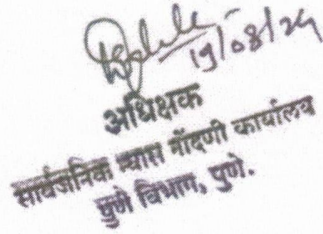 19/08/24
अधिक्षक
सार्वजनिक न्यास नोंदणी कार्यालय
पुणे विभाग, पुणे.